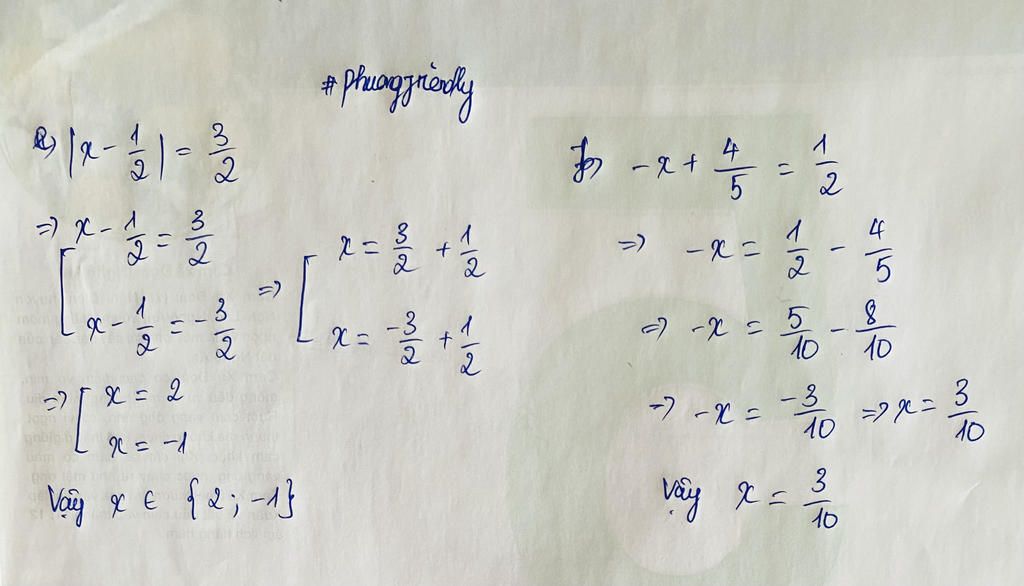 #phuongfriendly
a) |x - 1/2| = 3/2
=> [ x - 1/2 = 3/2
x - 1/2 = -3/2
=> [ x = 3/2 + 1/2
x = -3/2 + 1/2
=> [ x = 2
x = -1
Vậy x ∈ {2; -1}
b) -x + 4/5 = 1/2
=> -x = 1/2 - 4/5
=> -x = 5/10 - 8/10
=> -x = -3/10 => x = 3/10
Vậy x = 3/10